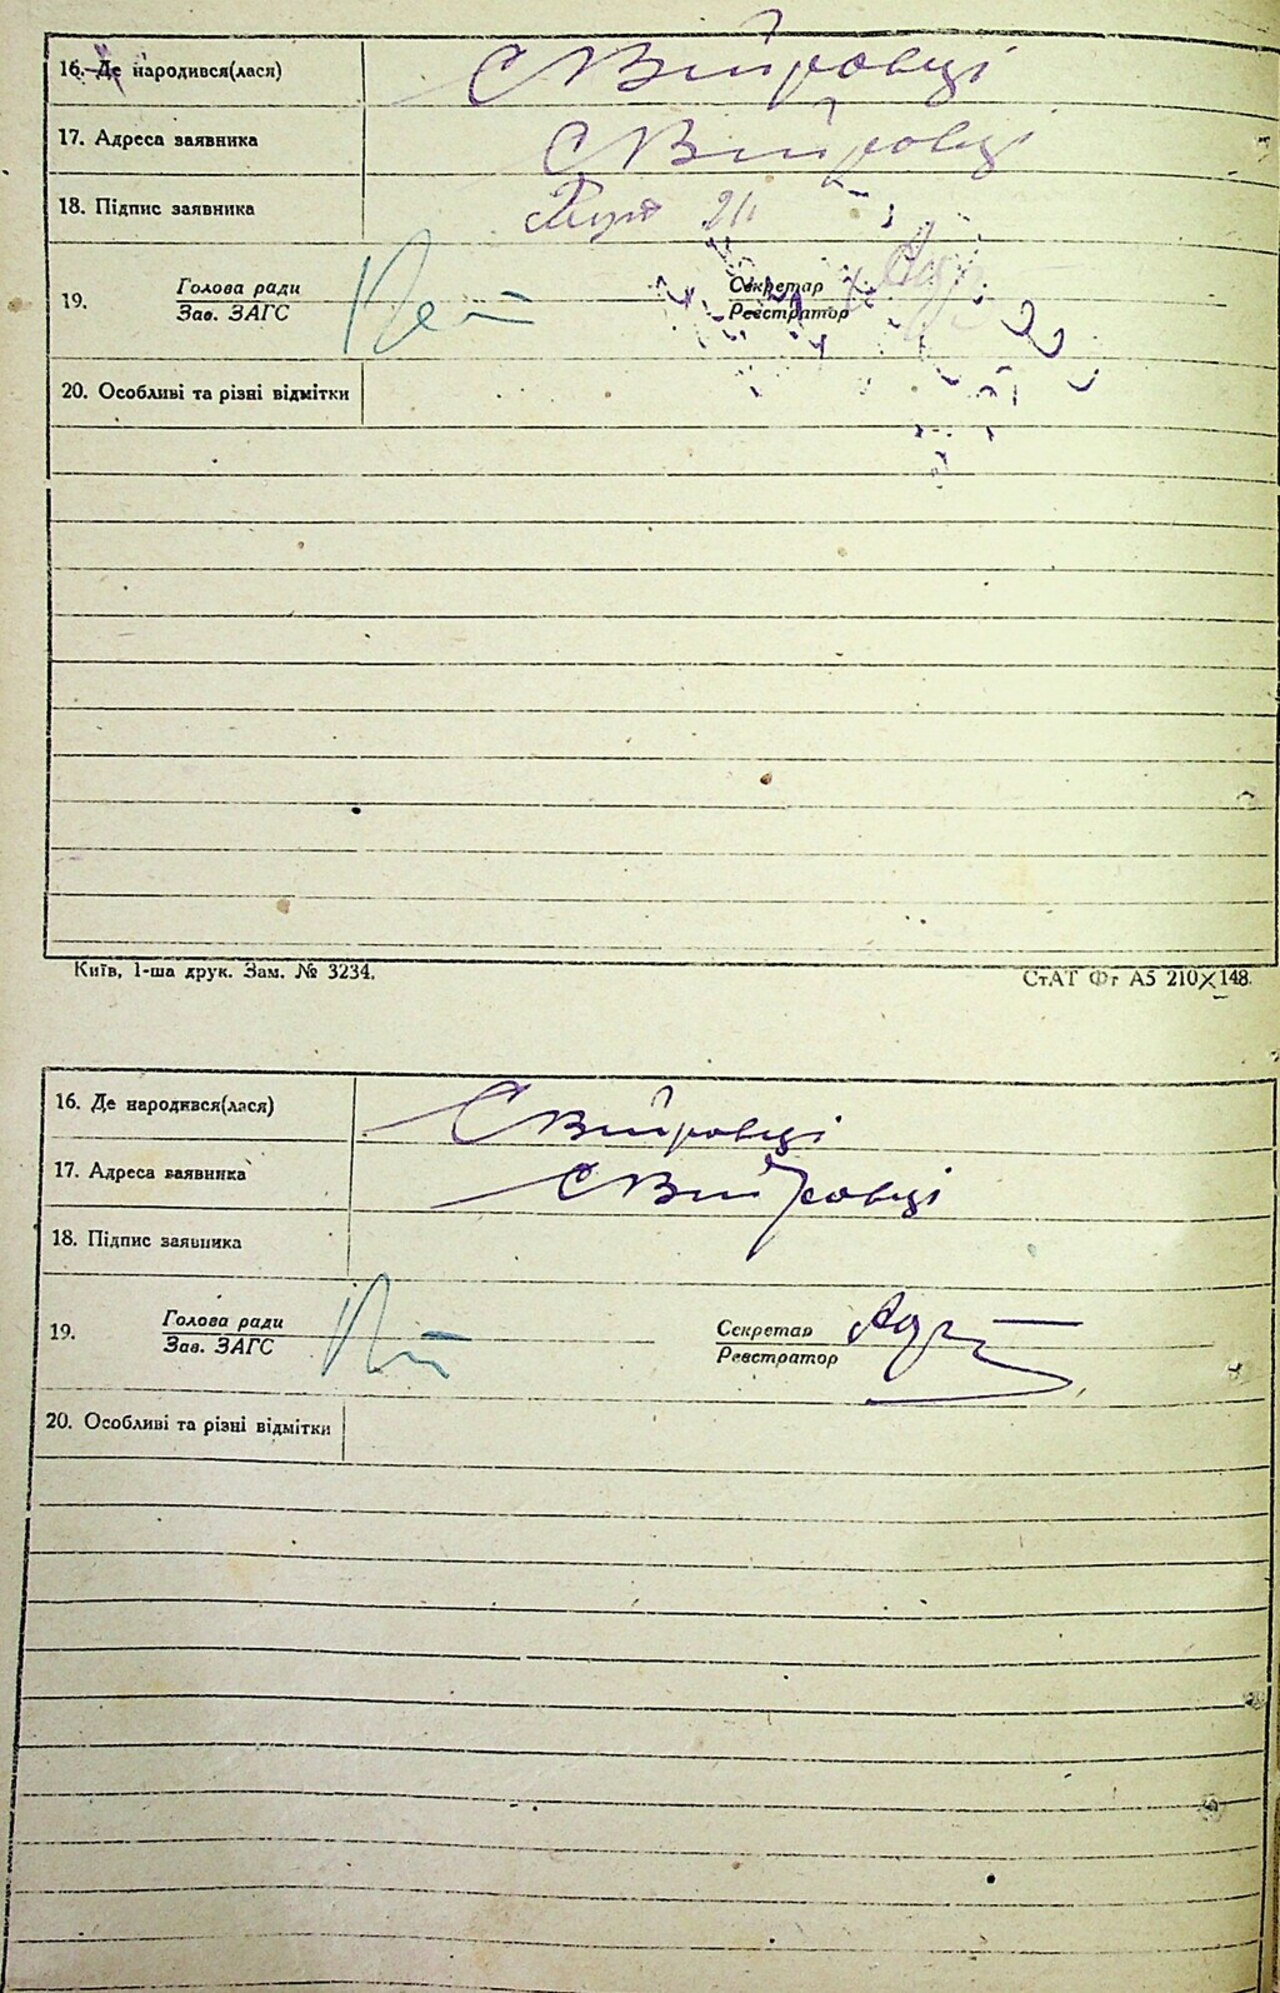 16. Де народився(лася) С Війтовці
17. Адреса заявника С Війтовці
18. Підпис заявника
Голова ради Секретар
19.
Зав. ЗАГС Реєстратор
20. Особливі та різні відмітки
Київ, 1-ша друк. Зам. № 3234. СтАТ Фг А5 210X148.
16. Де народився(лася) С Війтовці
17. Адреса заявника С Війтовці
18. Підпис заявника
Голова ради Секретар
19.
Зав. ЗАГС Реєстратор
20. Особливі та різні відмітки